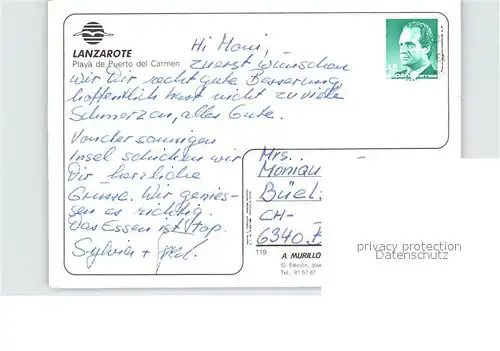 LANZAROTE
Playa de Puerto del Carmen
Hi Moni,
zuerst wünschen
wir Dir recht gute Besserung,
hoffentlich hast nicht zu viele
Schmerzen, alles Gute.
Von der sonnigen
Insel schicken wir
Dir herzliche
Grüsse. Wir genies-
sen es richtig.
Das Essen ist top.
Sylvia +
España correos
Mrs.
Monian
Büel
CH-
6340
119
A. MURILLO
© Edición,
Tel.: 81 57 61
privacy protection
Datenschutz